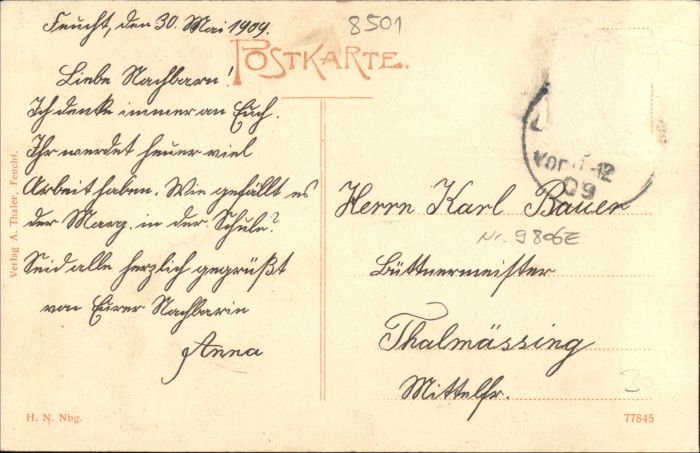 Feucht, den 30. Mai 1909.
8501
POSTKARTE.
Liebe Nachbarn!
Ich denke immer an Euch.
Ihr werdet heuer viel
Arbeit haben. Wie gefällt es
der Marg. in der Schule?
Seid alle herzlich gegrüßt
von Eurer Nachbarin
Anna
Verlag A. Thaler, Feucht.
Vor 11-12
09
Herrn Karl Bauer
Nr. 9806E
Büttnermeister
Thalmässing
Mittelfr.
30
H. N. Nbg.
77845